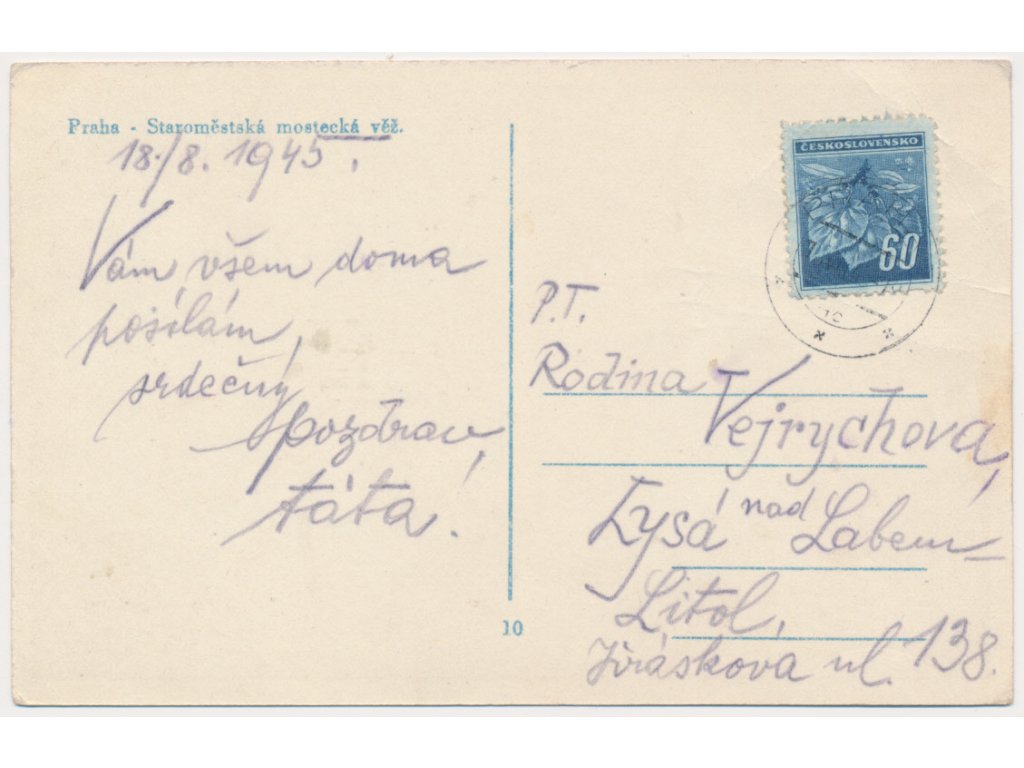 Praha - Staroměstská mostecká věž.
18./8. 1945.
Vám všem doma
posílám,
srdečný
pozdrav,
táta.
ČESKOSLOVENSKO
60
P.T.
Rodina
Vejrychova,
Lysá nad Labem-
Litol,
Jiráskova ul. 138.
10